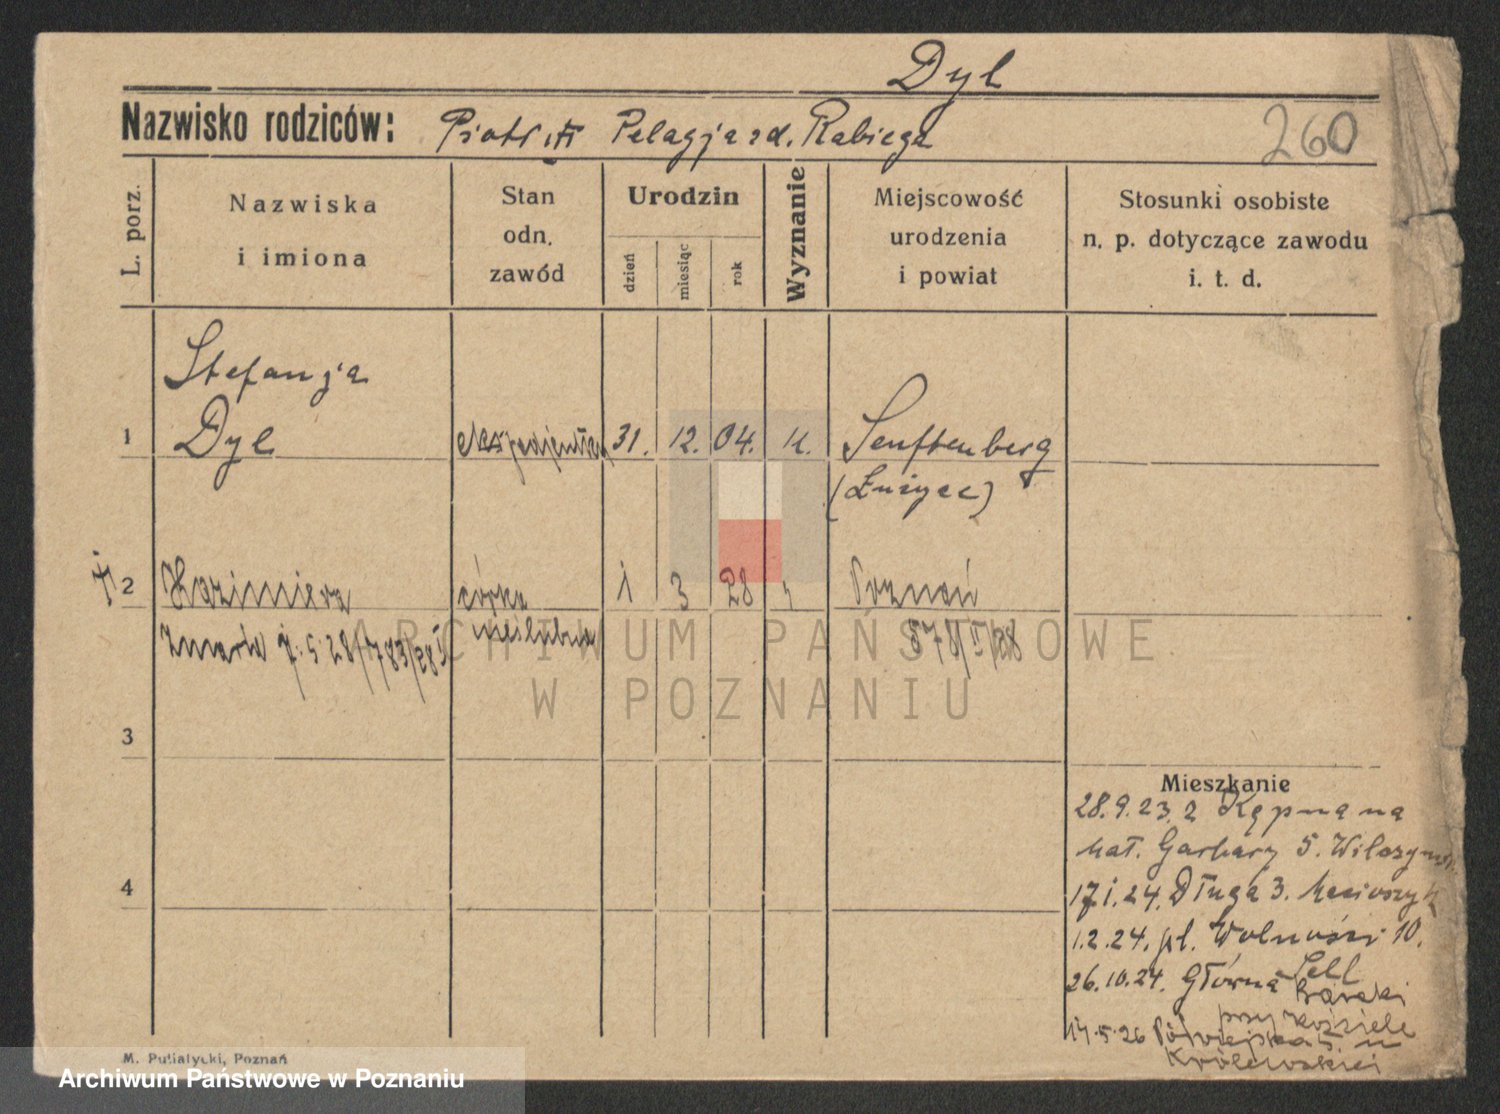 Dyl
Nazwisko rodziców: Piotr i Pelagja zd. Rabiega 260
L. porz.
Nazwiska i imiona
Stan odn. zawód
Urodzin
dzień miesiąc rok
Wyznanie
Miejscowość urodzenia i powiat
Stosunki osobiste n. p. dotyczące zawodu i. t. d.
Stefanja
1 Dyl ekspedjentka 31. 12. 04. k. Senftenberg
(Łużyce)
2 Kazimiera córka 1 3 28 Poznań
zmarła 5.28 nieślubna
3
4
Mieszkanie
28.9.23 z Kępna na
Mał. Garbary 5.
17.1.24. Długa 3.
1.2.24. pl. Wolności 10.
Sell
26.10.24. Główna
przy kościele
14.5.26 Półwiejska 5 u
Królewskiej
M. Putiatycki, Poznań
ARCHIWUM PAŃSTWOWE
W POZNANIU
Archiwum Państwowe w Poznaniu